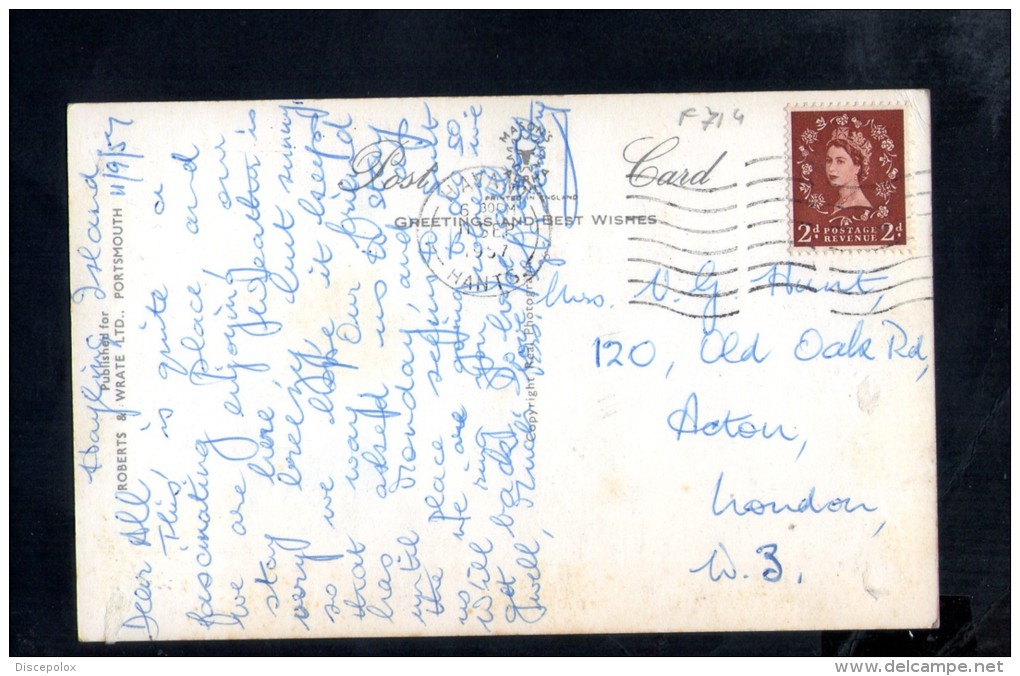 Hayling Island
11/9/57
Dear All,
This is quite a
fascinating place, and
we are enjoying our
stay here, the weather is
very breezy but sunny
so we hope it keeps
that way. Our friend
has asked us to stay
until Monday, and
the place seems to suit
us. We are going to do so
will ring you when we
get back,
well,
Published for
ROBERTS & WRATE LTD., PORTSMOUTH
Post Card
MASON'S
PRINTED IN ENGLAND
GREETINGS AND BEST WISHES
Copyright Real Photograph
F 714
HANTS
1957
2d POSTAGE REVENUE 2d
Miss. V. G Hunt,
120, Old Oak Rd,
Acton,
London,
W. 3.
Discepolox
www.delcampe.net